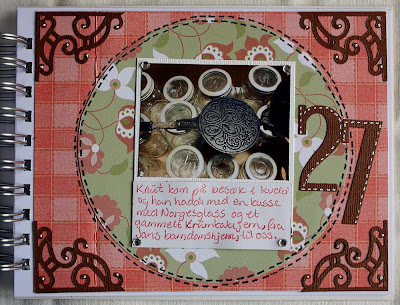 Knut kom på besøk i kveld
og han hadde med en kasse
med Norgesglass og et
gammelt Krumkakejern, fra
Jans barndomshjem, til oss.
27